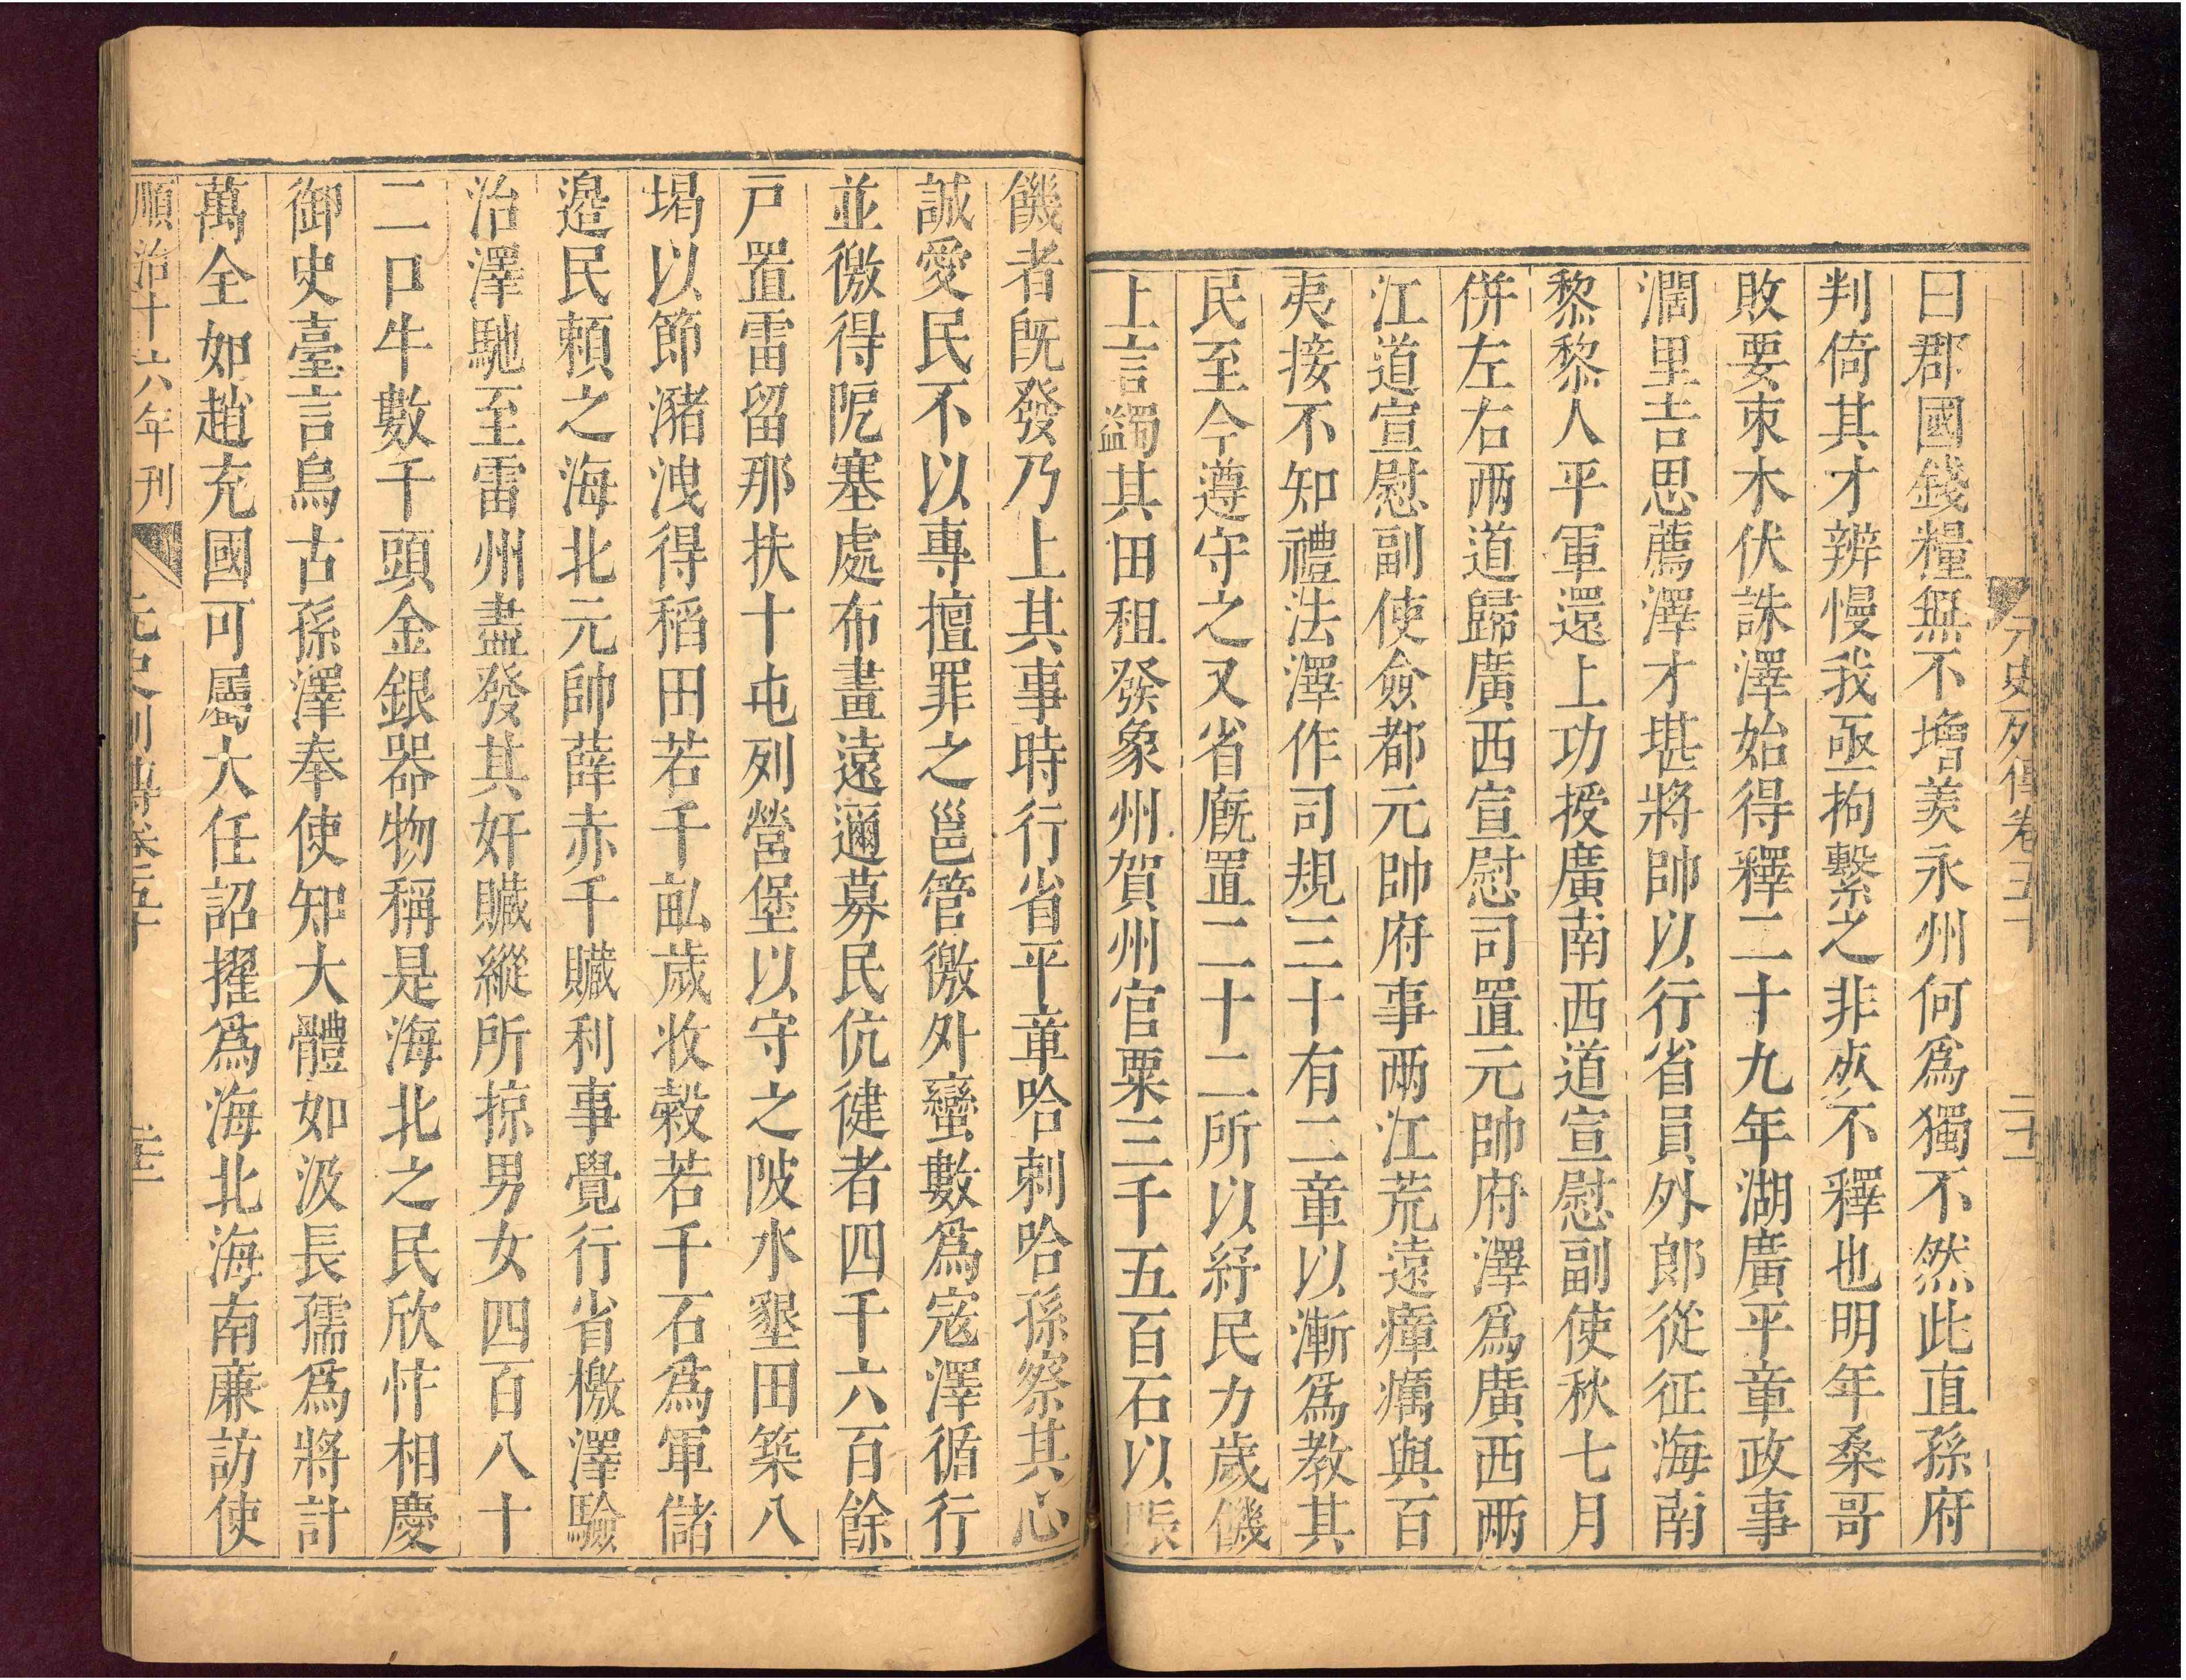 元史列傳卷五十 二十一
曰郡國錢糧無不增羨永州何爲獨不然此直孫府
判倚其才辨慢我亟拘繫之非死不釋也明年桑哥
敗要朿木伏誅澤始得釋二十九年湖廣平章政事
濶里吉思薦澤才堪將帥以行省員外郎從征海南
黎黎人平軍還上功授廣南西道宣慰副使秋七月
併左右兩道歸廣西宣慰司置元帥府澤爲廣西兩
江道宣慰副使僉都元帥府事兩江荒遠瘴癘與百
夷接不知禮法澤作司規三十有二章以漸爲教其
民至今遵守之又省廐置二十二所以紓民力歲饑
上言蠲其田租發象州賀州官粟三千五百石以賑
饑者既發乃上其事時行省平章哈剌哈孫察其心
誠愛民不以專擅罪之邕管徼外蠻數爲宼澤循行
並徼得阨塞處布畫遠邇募民伉健者四千六百餘
戸置雷留那扶十屯列營堡以守之陂水墾田築八
堨以節瀦洩得稻田若千畝歲收榖若千石爲軍儲
邉民賴之海北元帥薛赤千贓利事覺行省檄澤驗
治澤馳至雷州盡發其奸贓縱所掠男女四百八十
二口牛數千頭金銀器物稱是海北之民欣忭相慶
御史臺言烏古孫澤奉使知大體如汲長孺爲將計
萬全如趙充國可屬大任詔擢爲海北海南廉訪使
順治十六年刊 元史列傳卷五十